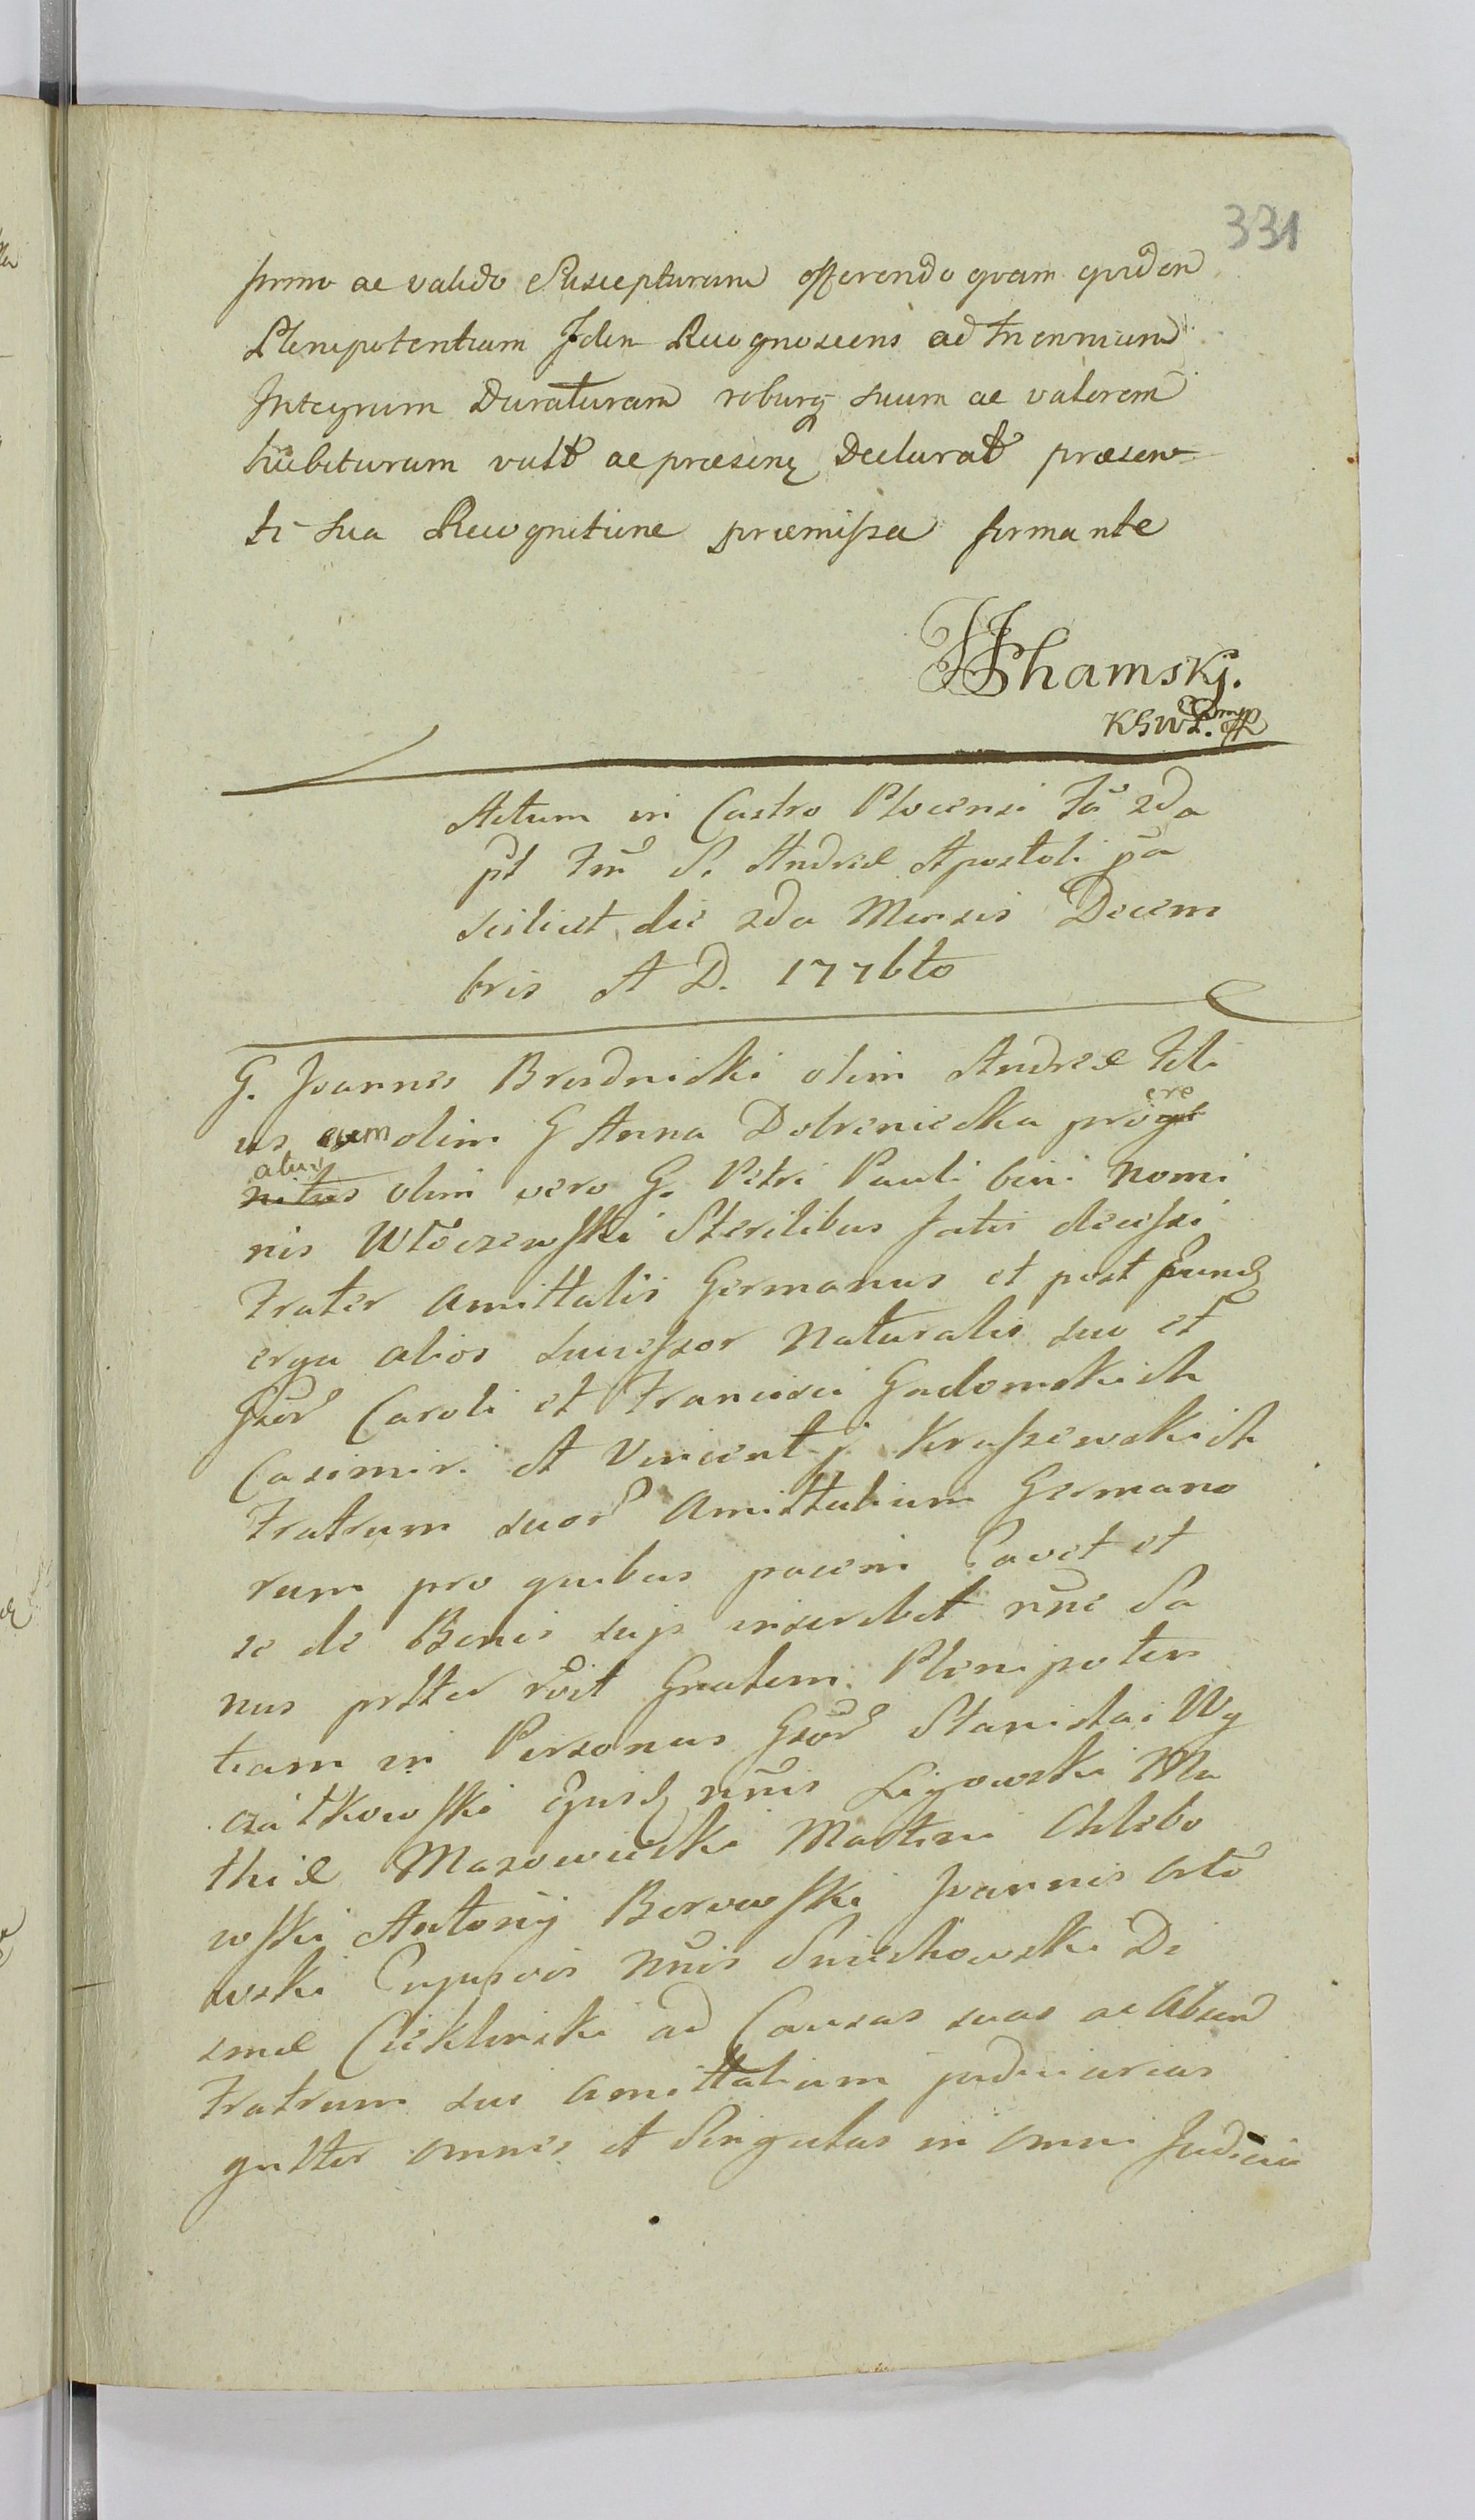 331
firmo ac valido Suscepturum offerendo quam quidem
Plenipotentiam Idem Recognoscens ad Triennium
Integrum Duraturam roburq suum ac valorem
habituram vult ac præsenę Declarat præsen=
ti sua Recognitione præmissa firmante
JJShamskj.
KGWP.
Actum in Castro Plocensi Fã 2da
pt Fm S. Andreæ Apostoli pã
scilicet die 2da Mensis Decem
bris A D. 1776to
G. Joannes Brudnicki olim Andreæ Fili
us cum olim G Anna Dobrzeniecka progere
natus olim vero G. Petri Pauli bini nomi
nis Włoczewski Sterilibus fatis decessi
Frater Amittalis Germanus et post
erga alios Successor Naturalis suo et
Gsor Caroli et Francisci Gadomskich
Casimiri et Vincentj Kraszewskich
Fratrum suor Amittalium Germano
rum pro quibus pacem Cavet et
se de Bonis sujs inscribit nune Sa
nus prtter röit Gnalem Plenipoten
tiam in Personas Gsor Stanislai Wy
czałkowski Ejusd nnis Ligowski Ma
thiæ Mazowiecki Martini Chlebo
wski Antonij Borowski Joannis Orło
wski Cujusvis Nnis Sniechowski De
smæ Cieklinski ad Causas suas ac
Fratrum sui Amittalium judiciarias
gnltter omnes et Singulas in omni Judicio